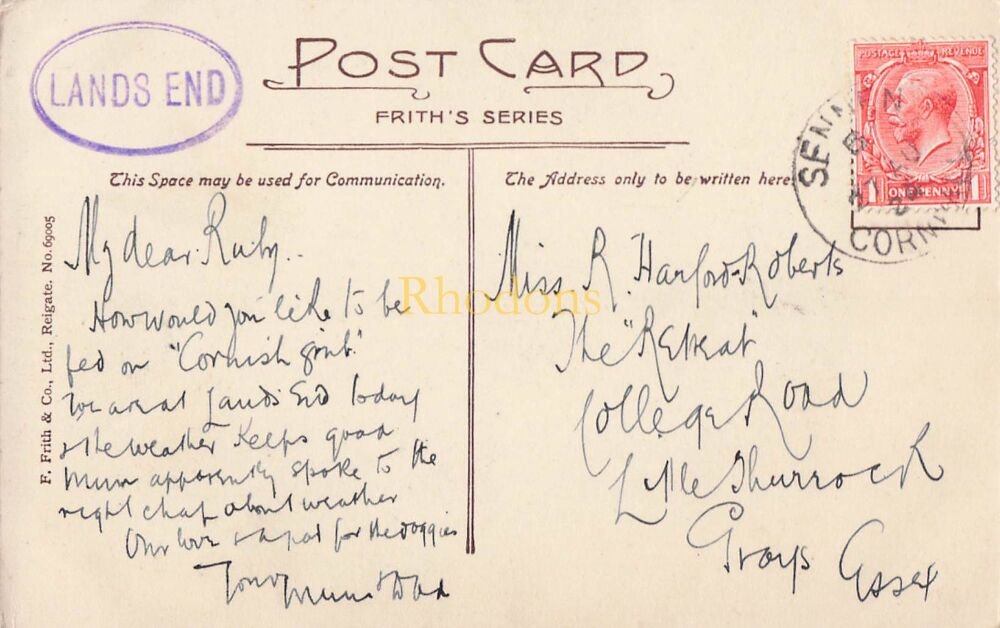 LANDS END
POST CARD
FRITH'S SERIES
POSTAGE REVENUE
1 ONE PENNY 1
SENNEN
CORNWALL
This Space may be used for Communication.
The Address only to be written here
F. Frith & Co., Ltd., Reigate. No. 69005
My dear Ruby..
How would you like to be
fed on "Cornish grub".
We are at Lands End today
& the weather keeps good
Mum apparently spoke to the
right chap about weather
Our love & a pat for the doggies
Your Mum & Dad
Miss R. Harford-Roberts
The "Retreat"
College Road
Little Thurrock
Grays Essex
Rhodons